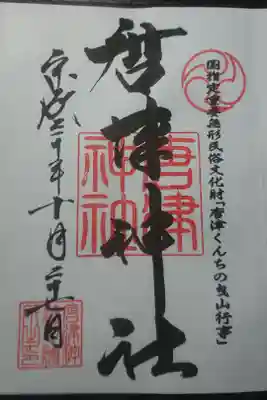 国指定重要無形民俗文化財「唐津くんちの曳山行事」
唐津神社
唐津
神社
平成二十年十月二十一日